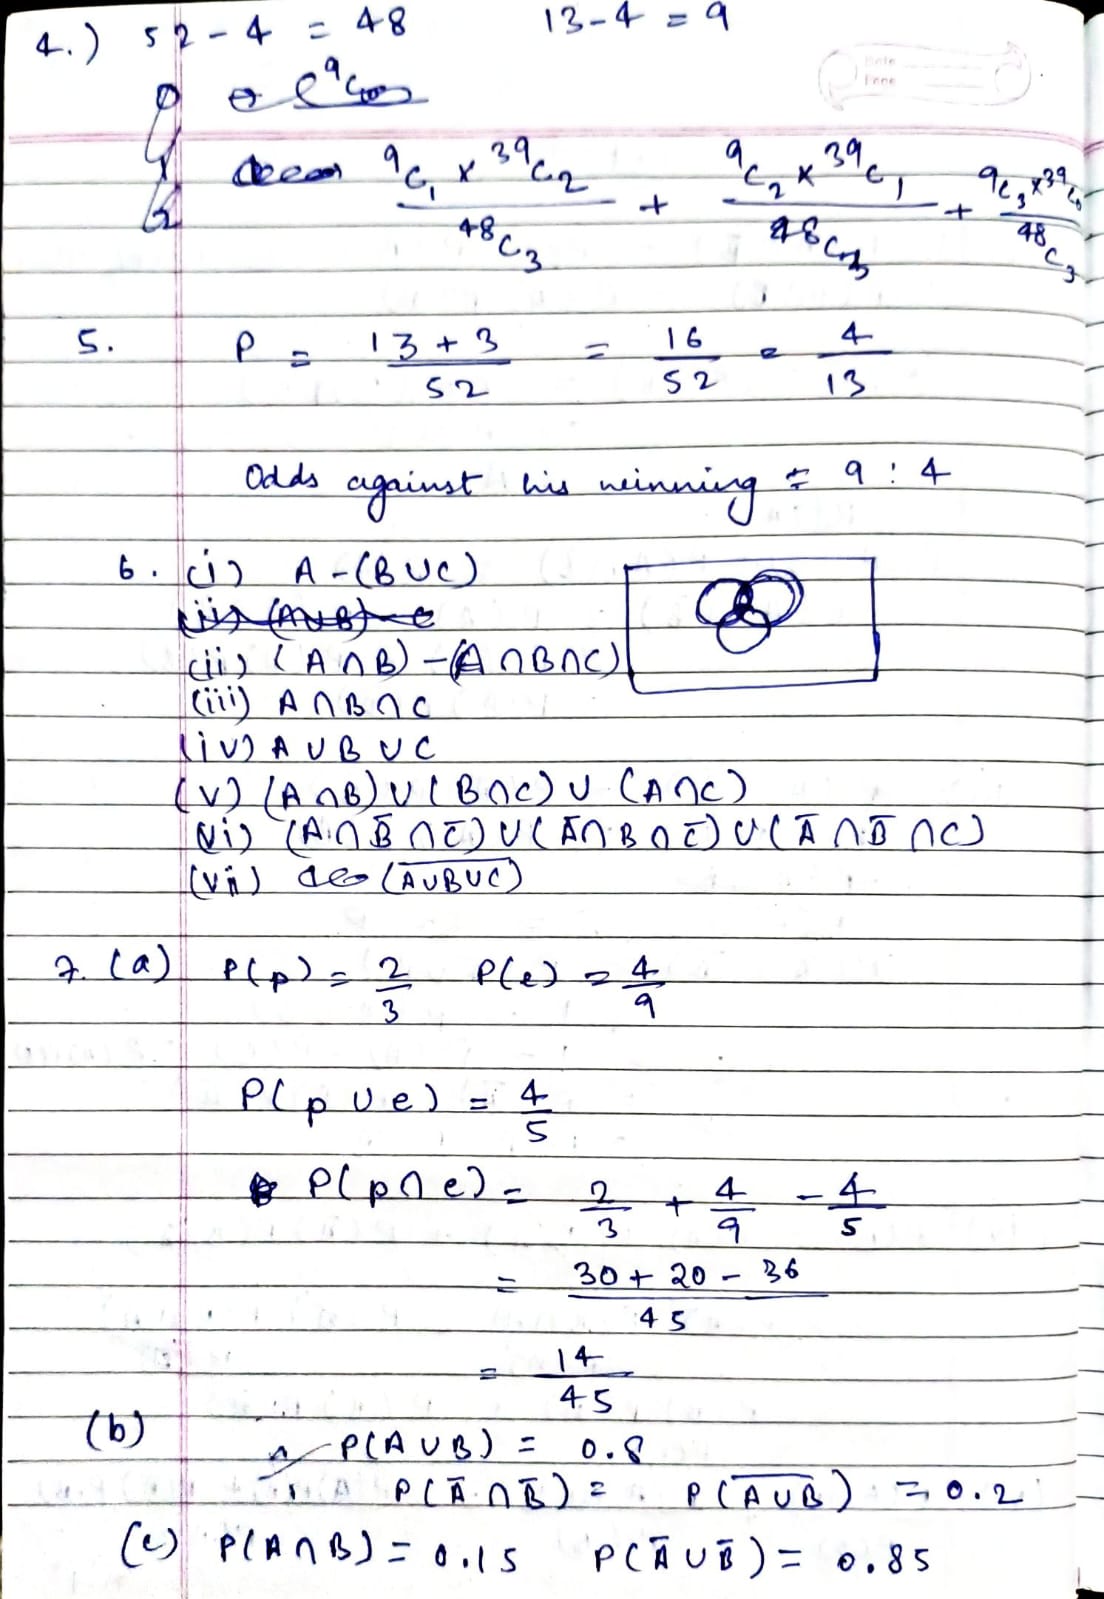 4.) 52 - 4 = 48 13 - 4 = 9
Date
Page
⁹C₁ × ³⁹C₂ / ⁴⁸C₃ + ⁹C₂ × ³⁹C₁ / ⁴⁸C₃ + ⁹C₃ × ³⁹C₀ / ⁴⁸C₃
5. P = 13 + 3 / 52 = 16 / 52 = 4 / 13
Odds against his winning = 9 : 4
6. (i) A - (B ∪ C)
(ii) (A ∪ B) - C
(ii) (A ∩ B) - (A ∩ B ∩ C)
(iii) A ∩ B ∩ C
(iv) A ∪ B ∪ C
(v) (A ∩ B) ∪ (B ∩ C) ∪ (A ∩ C)
(vi) (A ∩ B̄ ∩ C̄) ∪ (Ā ∩ B ∩ C̄) ∪ (Ā ∩ B̄ ∩ C)
(vii) (A̅ ∪̅ B̅ ∪̅ C̅)
7. (a) P(p) = 2/3 P(e) = 4/9
P(p ∪ e) = 4/5
P(p ∩ e) = 2/3 + 4/9 - 4/5
= 30 + 20 - 36 / 45
= 14 / 45
(b) P(A ∪ B) = 0.8
P(Ā ∩ B̄) = P(A̅ ∪̅ B̅) = 0.2
(c) P(A ∩ B) = 0.15 P(Ā ∪ B̄) = 0.85